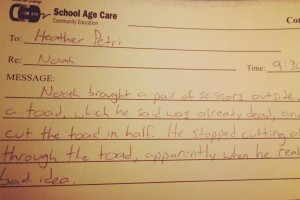 School Age Care
Community Education
Co
To: Heather Petri
Re: Noah
Time: 9:30
MESSAGE:
Noah brought a pair of scissors outside
a toad, which he said was already dead, and
cut the toad in half. He stopped cutting a
through the toad, apparently when he real
bad idea.